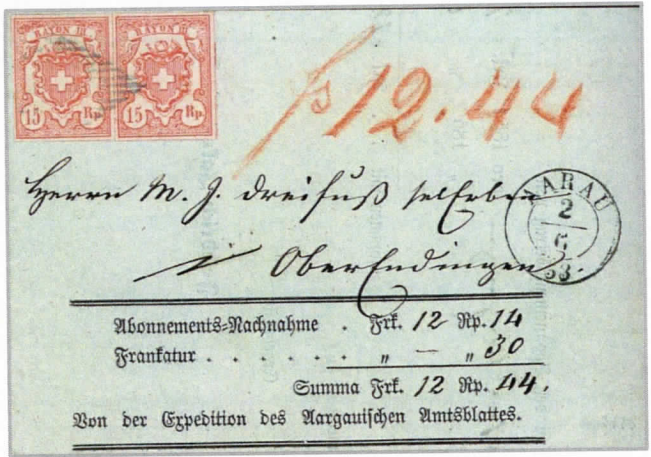 RAYON II. RAYON II.
15 Rp. 15 Rp.
fs 12.44
Herrn M. J. Dreifuß sel Erben
AARAU
2
6
53
i Ober Endingen.
Abonnements-Nachnahme . Frk. 12 Rp. 14
Frankatur . . . . . . „ — „ 30
Summa Frk. 12 Rp. 44.
Von der Expedition des Aargauischen Amtsblattes.